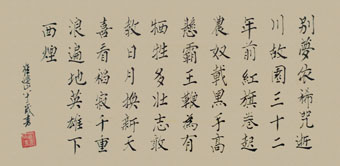 别夢依稀咒逝
川故園三十二
年前紅旗卷起
農奴戟黑手高
懸霸王鞭為有
犧牲多壯志敢
教日月換新天
喜看稻菽千重
浪遍地英雄下
西煙